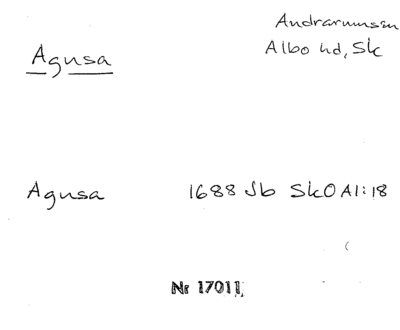 Andrarumssn
Albo hd, Sk
Agusa
Agusa 1688 Jb SkO A1:18
Nr 17011